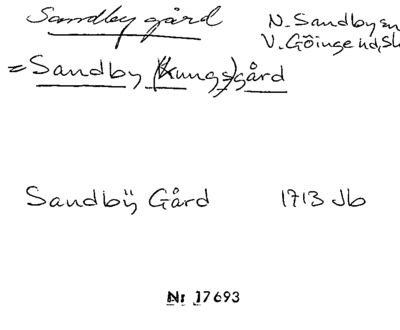 Sandby gård
N. Sandby sn
V. Göinge hd, Sk
= Sandby (Kungs)gård
Sandbÿ Gård 1713 Jb
Nr 17693